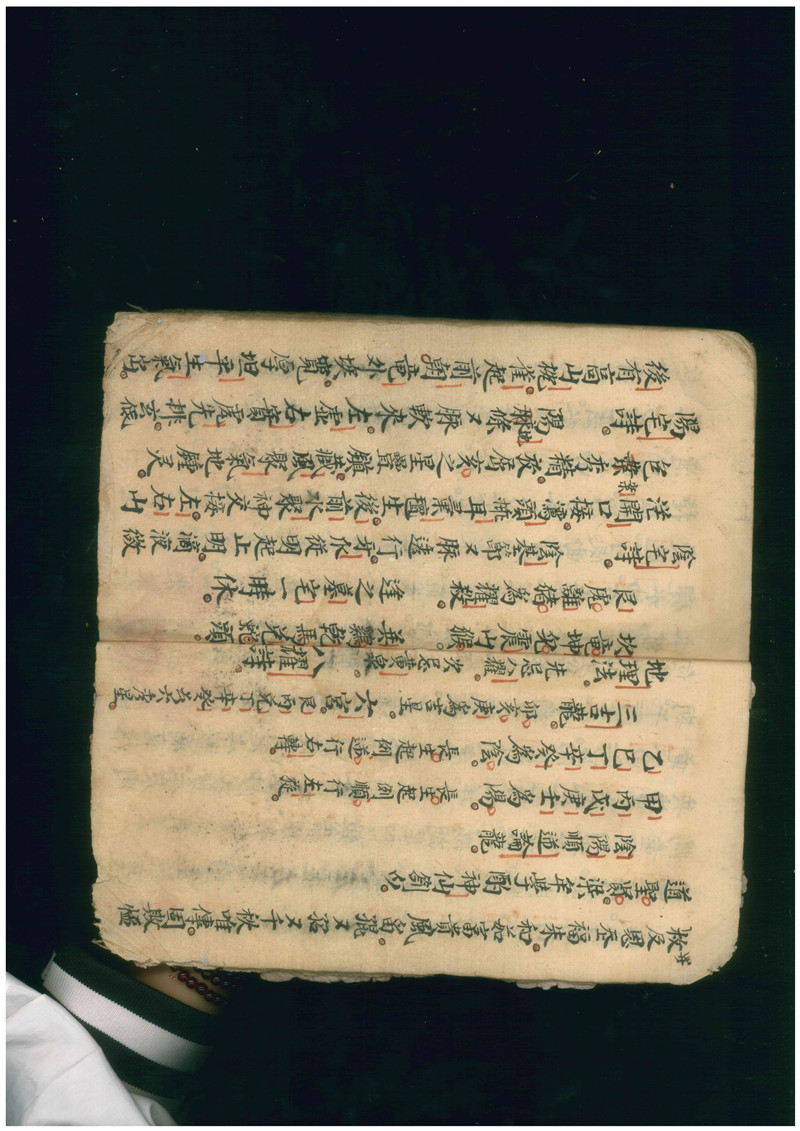 枚反恩丕福朱和茹富貴風畄猑又㝯又千秋唯傳固敗恆
道聖賢渠牟學酌神仙劄以
陰陽順逆論龍
甲丙戊庚壬為陽 長生起例順行左旋
乙巳丁辛癸為陰 長生起例逆行右轉
三吉龍 卯亥庚為吉星 六宮 艮丙兌丁辛癸為六秀星
地理法 先忌八耀 次忌黃泉 八耀詩
坎竜坤兔震山猴 巽鷄乾馬兌蛇頭
艮虎離猪為耀殺 逢之墓宅一時休
陰宅詩 陰基節又脉逶行牙爪従明起止明滴液微
茫開口接濡頭排耳稟穜生後前水聚神交接左右山
包秀精夜屈亥之星疊鎮藏風聚氣地鍾灵
陽宅詩 陽地脉條又脉軟來左虛右實虎先排玄低
後有高山枕雀起前朝竜外埃寬厚坦平生氣出